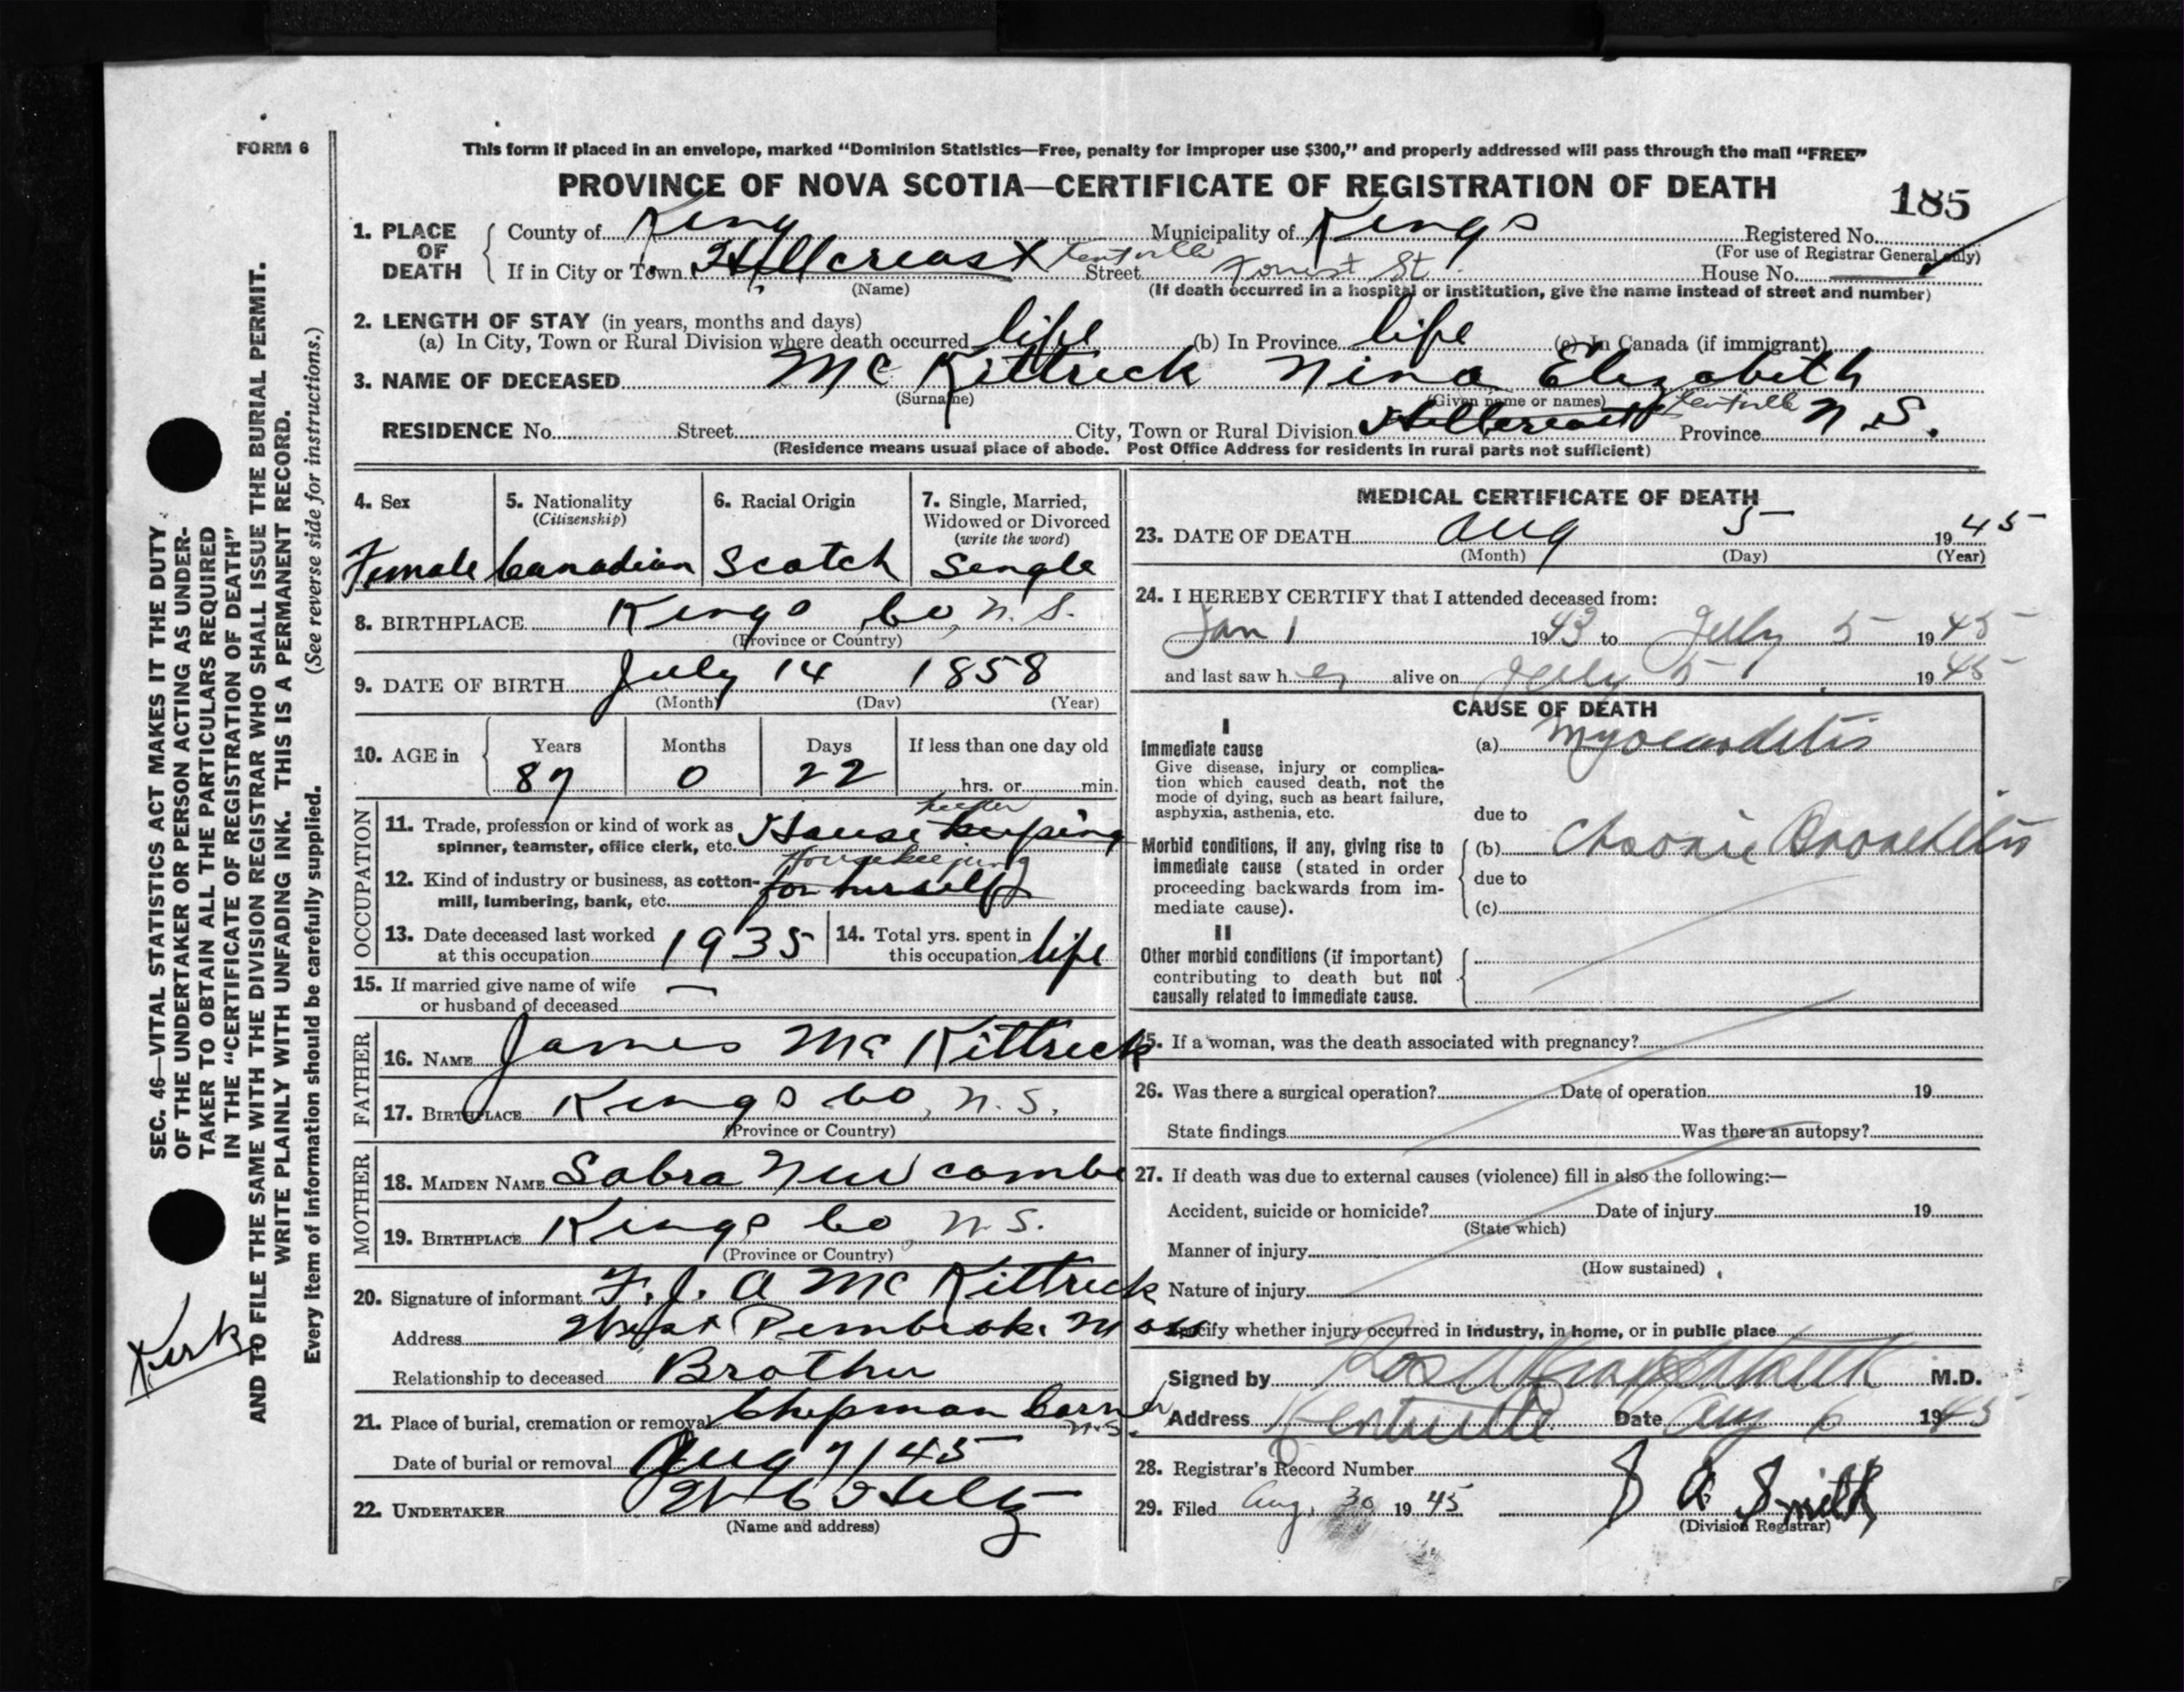 FORM 6
This form if placed in an envelope, marked “Dominion Statistics—Free, penalty for improper use $300,” and properly addressed will pass through the mail “FREE”
PROVINCE OF NOVA SCOTIA—CERTIFICATE OF REGISTRATION OF DEATH
185
1. PLACE OF DEATH
County of Kings Municipality of Kings Registered No.
(For use of Registrar General only)
If in City or Town Hillcreast Kentville Street Forrest St. House No.
(Name) (If death occurred in a hospital or institution, give the name instead of street and number)
2. LENGTH OF STAY (in years, months and days)
(a) In City, Town or Rural Division where death occurred life (b) In Province life (c) In Canada (if immigrant)
3. NAME OF DECEASED Mc Kittrick Nina Elizabeth
(Surname) (Given name or names)
RESIDENCE No. Street City, Town or Rural Division Hillcreast Kentville Province N.S.
(Residence means usual place of abode. Post Office Address for residents in rural parts not sufficient)
4. Sex
Female
5. Nationality
(Citizenship)
Canadian
6. Racial Origin
Scotch
7. Single, Married,
Widowed or Divorced
(write the word)
Single
8. BIRTHPLACE Kings Co, N.S.
(Province or Country)
9. DATE OF BIRTH July 14 1858
(Month) (Day) (Year)
10. AGE in
Years Months Days If less than one day old
87 0 22 hrs. or min.
OCCUPATION
11. Trade, profession or kind of work as
spinner, teamster, office clerk, etc. House keeping keeper
12. Kind of industry or business, as cotton-
mill, lumbering, bank, etc. for herself Housekeeping
13. Date deceased last worked
at this occupation 1935
14. Total yrs. spent in
this occupation life
15. If married give name of wife
or husband of deceased —
FATHER
16. NAME James Mc Kittrick
17. BIRTHPLACE Kings Co, N.S.
(Province or Country)
MOTHER
18. MAIDEN NAME Sabra Newcombe
19. BIRTHPLACE Kings Co, N.S.
(Province or Country)
20. Signature of informant F. J. A Mc Kittrick
Address West Pembroke Mass
Relationship to deceased Brother
21. Place of burial, cremation or removal Chepman Corner N.S.
Date of burial or removal Aug 7/45
22. UNDERTAKER W C Hiltz
(Name and address)
MEDICAL CERTIFICATE OF DEATH
23. DATE OF DEATH Aug 5 1945
(Month) (Day) (Year)
24. I HEREBY CERTIFY that I attended deceased from:
Jan 1 1943 to July 5 1945
and last saw her alive on July 5 1945
CAUSE OF DEATH
I
Immediate cause
Give disease, injury or complica-
tion which caused death, not the
mode of dying, such as heart failure,
asphyxia, asthenia, etc.
(a) Myocarditis
due to
Morbid conditions, if any, giving rise to
immediate cause (stated in order
proceeding backwards from im-
mediate cause).
(b) Chronic Bronchitis
due to
(c)
II
Other morbid conditions (if important)
contributing to death but not
causally related to immediate cause.
25. If a woman, was the death associated with pregnancy?
26. Was there a surgical operation? Date of operation 19
State findings Was there an autopsy?
27. If death was due to external causes (violence) fill in also the following:—
Accident, suicide or homicide? Date of injury 19
(State which)
Manner of injury
(How sustained)
Nature of injury
Specify whether injury occurred in industry, in home, or in public place
Signed by M.D.
Address Kentville Date Aug 6 1945
28. Registrar's Record Number
29. Filed Aug. 30 1945 A Smith
(Division Registrar)
SEC. 46—VITAL STATISTICS ACT MAKES IT THE DUTY
OF THE UNDERTAKER OR PERSON ACTING AS UNDER-
TAKER TO OBTAIN ALL THE PARTICULARS REQUIRED
IN THE “CERTIFICATE OF REGISTRATION OF DEATH”
AND TO FILE THE SAME WITH THE DIVISION REGISTRAR WHO SHALL ISSUE THE BURIAL PERMIT.
WRITE PLAINLY WITH UNFADING INK. THIS IS A PERMANENT RECORD.
Every item of information should be carefully supplied. (See reverse side for instructions.)
Kirk